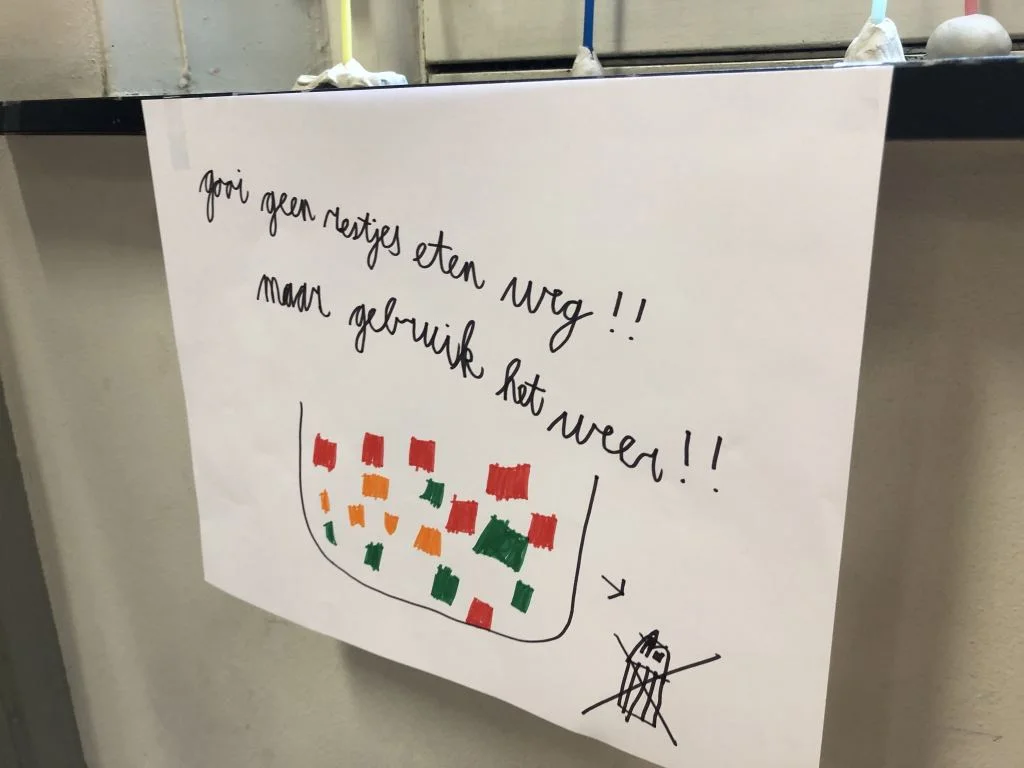 gooi geen restjes eten weg!!
maar gebruik het weer!!